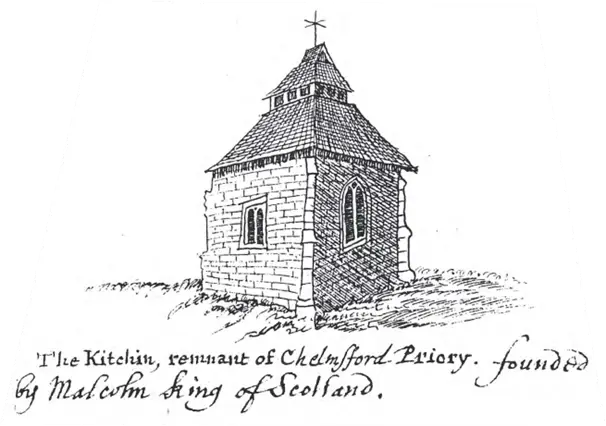 The Kitchin, remnant of Chelmsford Priory. founded
by Malcolm King of Scotland.